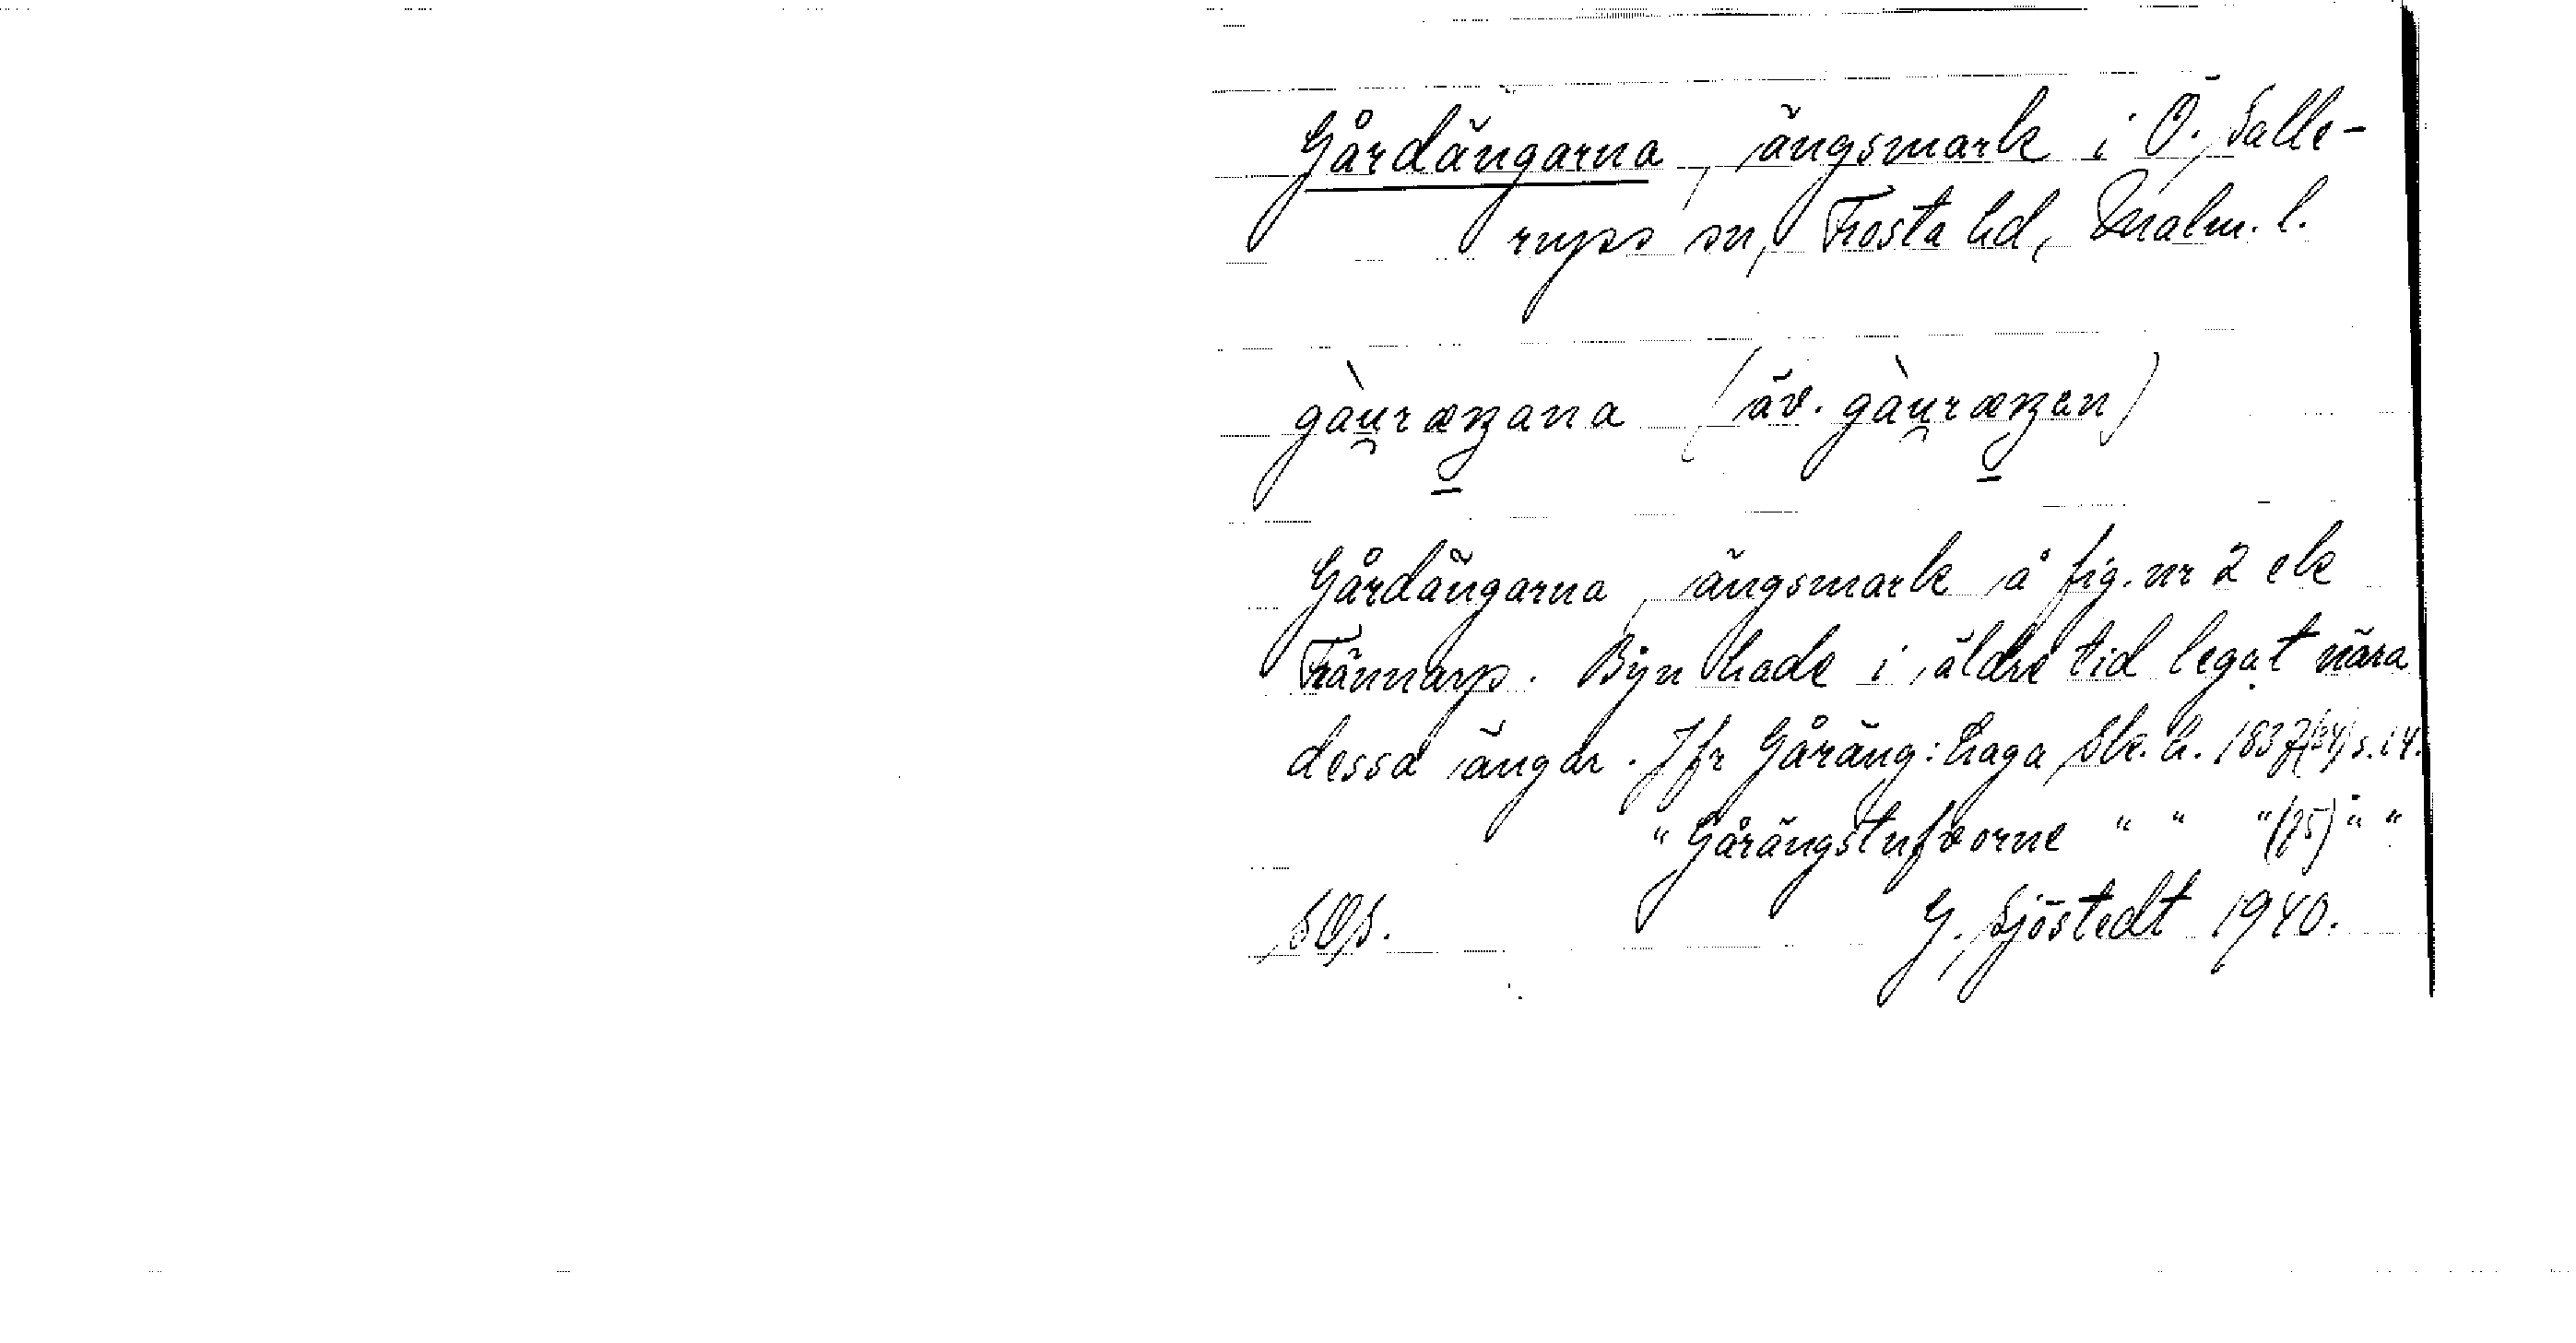 Gårdängarna, ängsmark i Ö. Salle-
rups sn, Frosta hd, Malm. l.
gàu̯ræŋana (äv. gàu̯ræŋen)
Gårdängarna, ängsmark å fig. nr 2 ek
Trännarp. Byn hade i äldre tid legat nära
dessa ängar. Jfr Gåräng: haga Sk. h. 1837 s. 14.
" Gårängstufvorne " " " (75) " "
SOS.
G. Sjöstedt 1940.